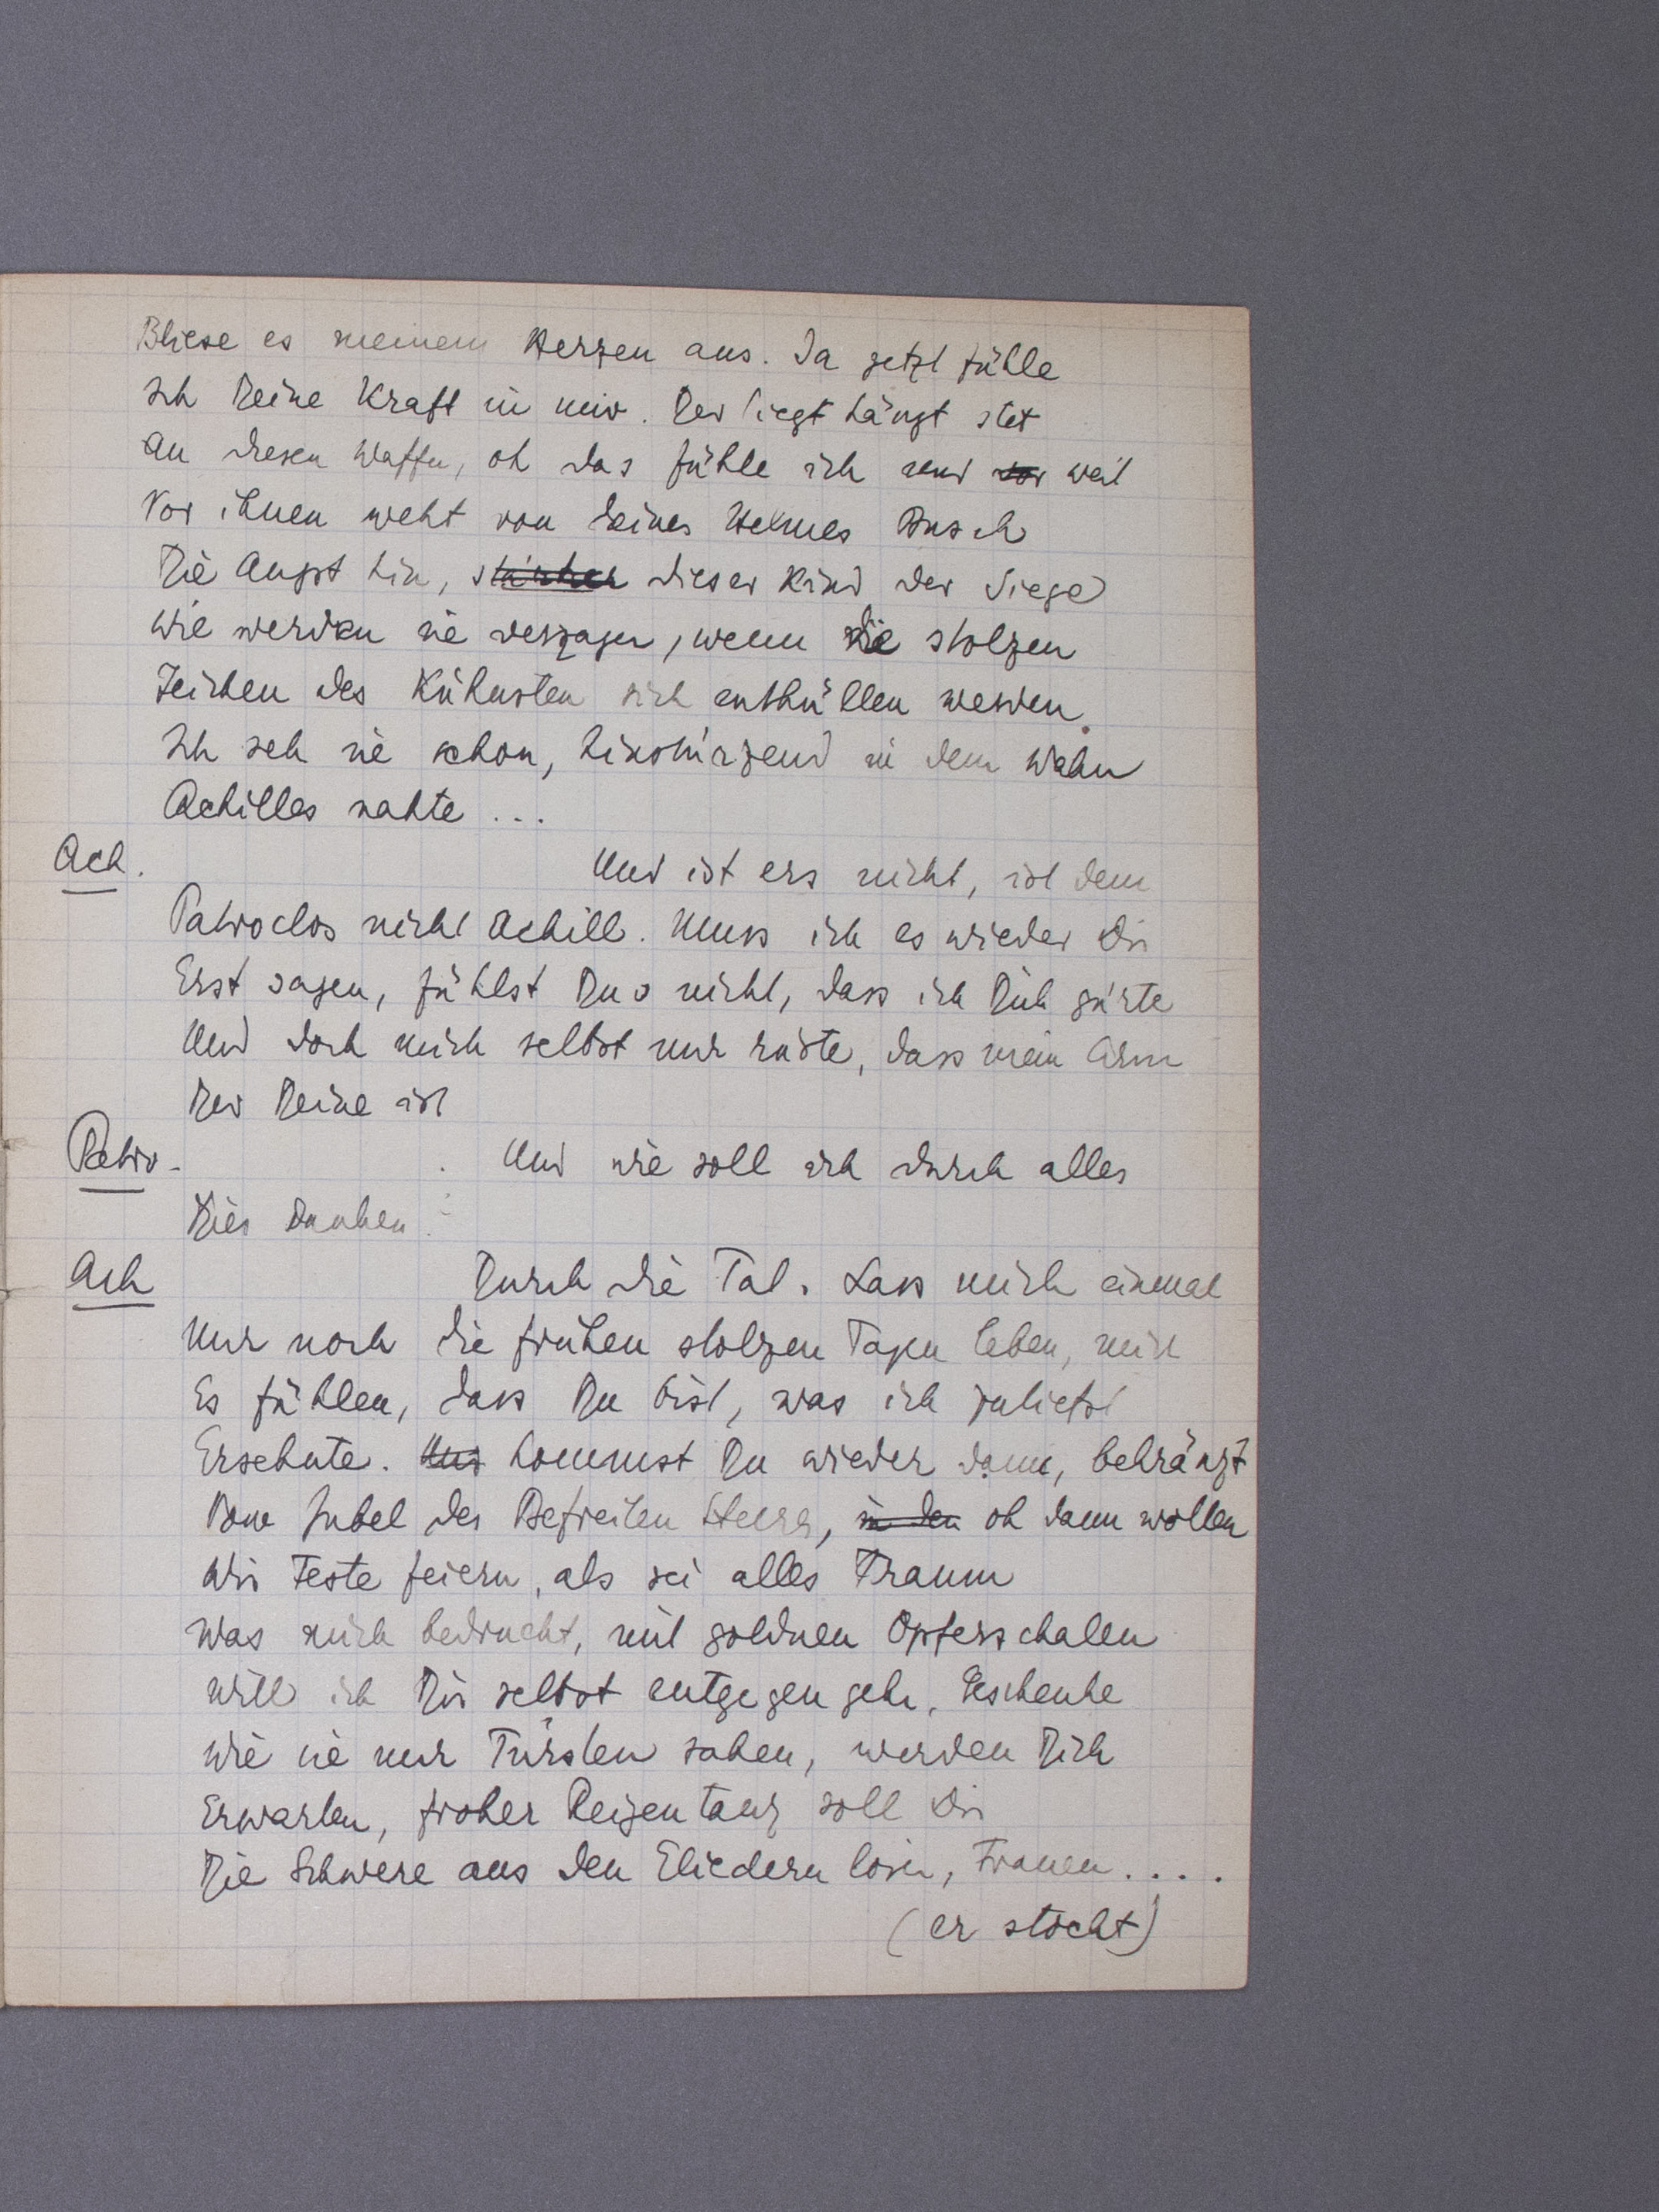 Bliese es meinem Herzen aus. Ja jetzt fühle
Ich Deine Kraft in mir. Der Sieg hängt stet
An diesen Waffen, oh das fühle ich und vor weit
Vor ihnen weht von Deines Helmes Busch
Die Angst hin, stärker dieser Kind der Siege
Wie werden sie verzagen, wenn die stolzen
Zeichen des Kühnsten sich enthüllen werden.
Ich seh sie schon, hinstürzend in dem Wahn
Achilles nahte ...
Ach. Und ist ers nicht, ist denn
Patroclos nicht Achill. Muss ich es wieder Dir
Erst sagen, fühlst Du's nicht, dass ich Dich gürte
Und doch mich selbst nur rüste, dass mein Arm
Der Deine ist
Patro. Und wie soll ich Durch alles
Dies Danken
Ach Durch die Tat. Lass mich einmal
Nur noch die frühen stolzen Tage leben, mich
Es fühlen, dass Du bist, was ich zutiefst
Ersehnte. Und kommst Du wieder dann, bekränzt
Vom Jubel des Befreiten Heers, in den oh dann wollen
Wir Feste feiern, als sei alles Traum
Was mich bedrückt, mit goldnen Opferschalen
Will ich Dir selbst entgegen gehn, Geschenke
Wie sie nur Fürsten sahen, werden Dich
Erwarten, froher Reigentanz soll Dir
Die Schwere aus den Gliedern lösen, Frauen....
(er stockt)